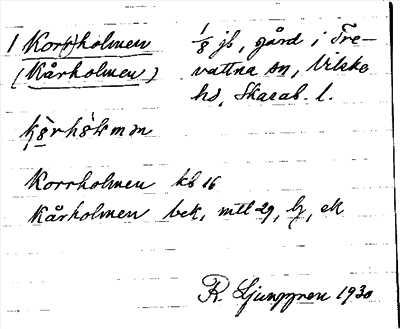 1 Kor(r)holmen 1/8 jb, gård i Tre-
(Kårholmen) vattna sn, Vilske
hd, Skarab. l.
Korrholmen kb 16
Kårholmen bek, mtl 29, lj, ek
R. Ljunggren 1930